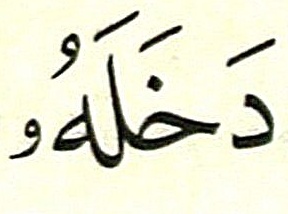 دَخَلَهُۥ